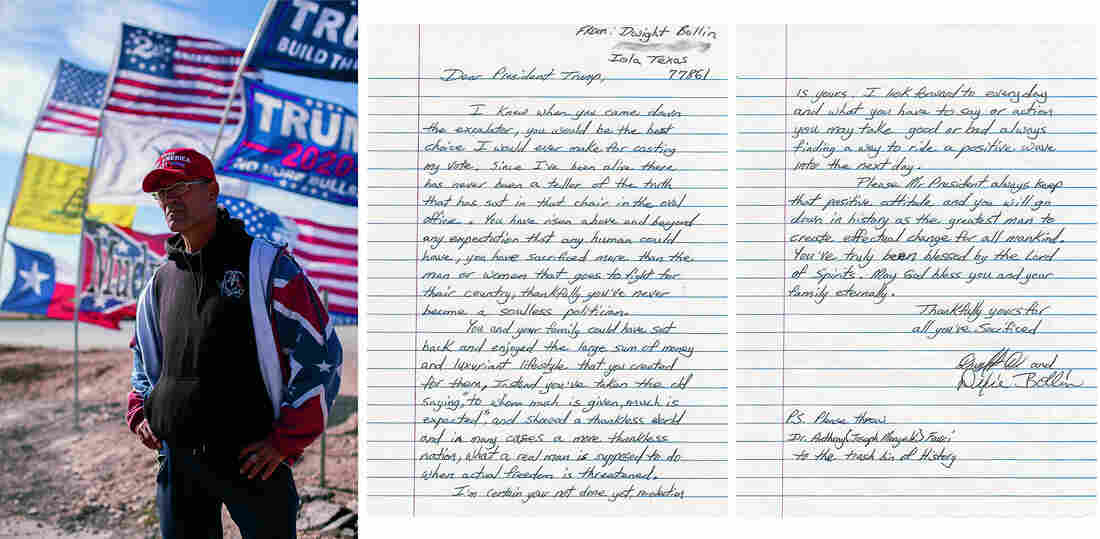 TRU
BUILD THE
2
TRUM
2020
NO MORE BULL
AMERICA
From: Dwight Bollin
Iola Texas
77861
Dear President Trump,
I knew when you came down
the excalator, you would be the best
choice I would ever make for casting
my vote. Since I've been alive there
has never been a teller of the truth
that has sat in that chair in the oval
office. You have risen above and beyond
any expectation that any human could
have, you have sacrificed more than the
man or women that goes to fight for
thair country, thankfully you've never
become a soulless politician.
You and your family could have sat
back and enjoyed the large sum of money
and luxuriant lifestyle that you created
for them, Instead you've taken the old
saying "to whom much is given, much is
expected", and showed a thankless world
and in many cases a more thankless
nation, what a real man is supposed to do
when actual freedom is threatened.
I'm certain your not done yet, reelection
is yours. I look forward to everyday
and what you have to say or action
you may take good or bad always
finding a way to ride a positive wave
into the next day.
Please Mr President always keep
that positive attitude, and you will go
down in history as the greatest man to
create effectual change for all mankind.
You've truly been blessed by the Lord
of Spirits. May God bless you and your
family eternally.
Thankfully yours for
all you've Sacrificed
and
Bollin
P.S. Please throw
Dr. Anthony (Joseph Mengele) Fauci
to the trash bin of History